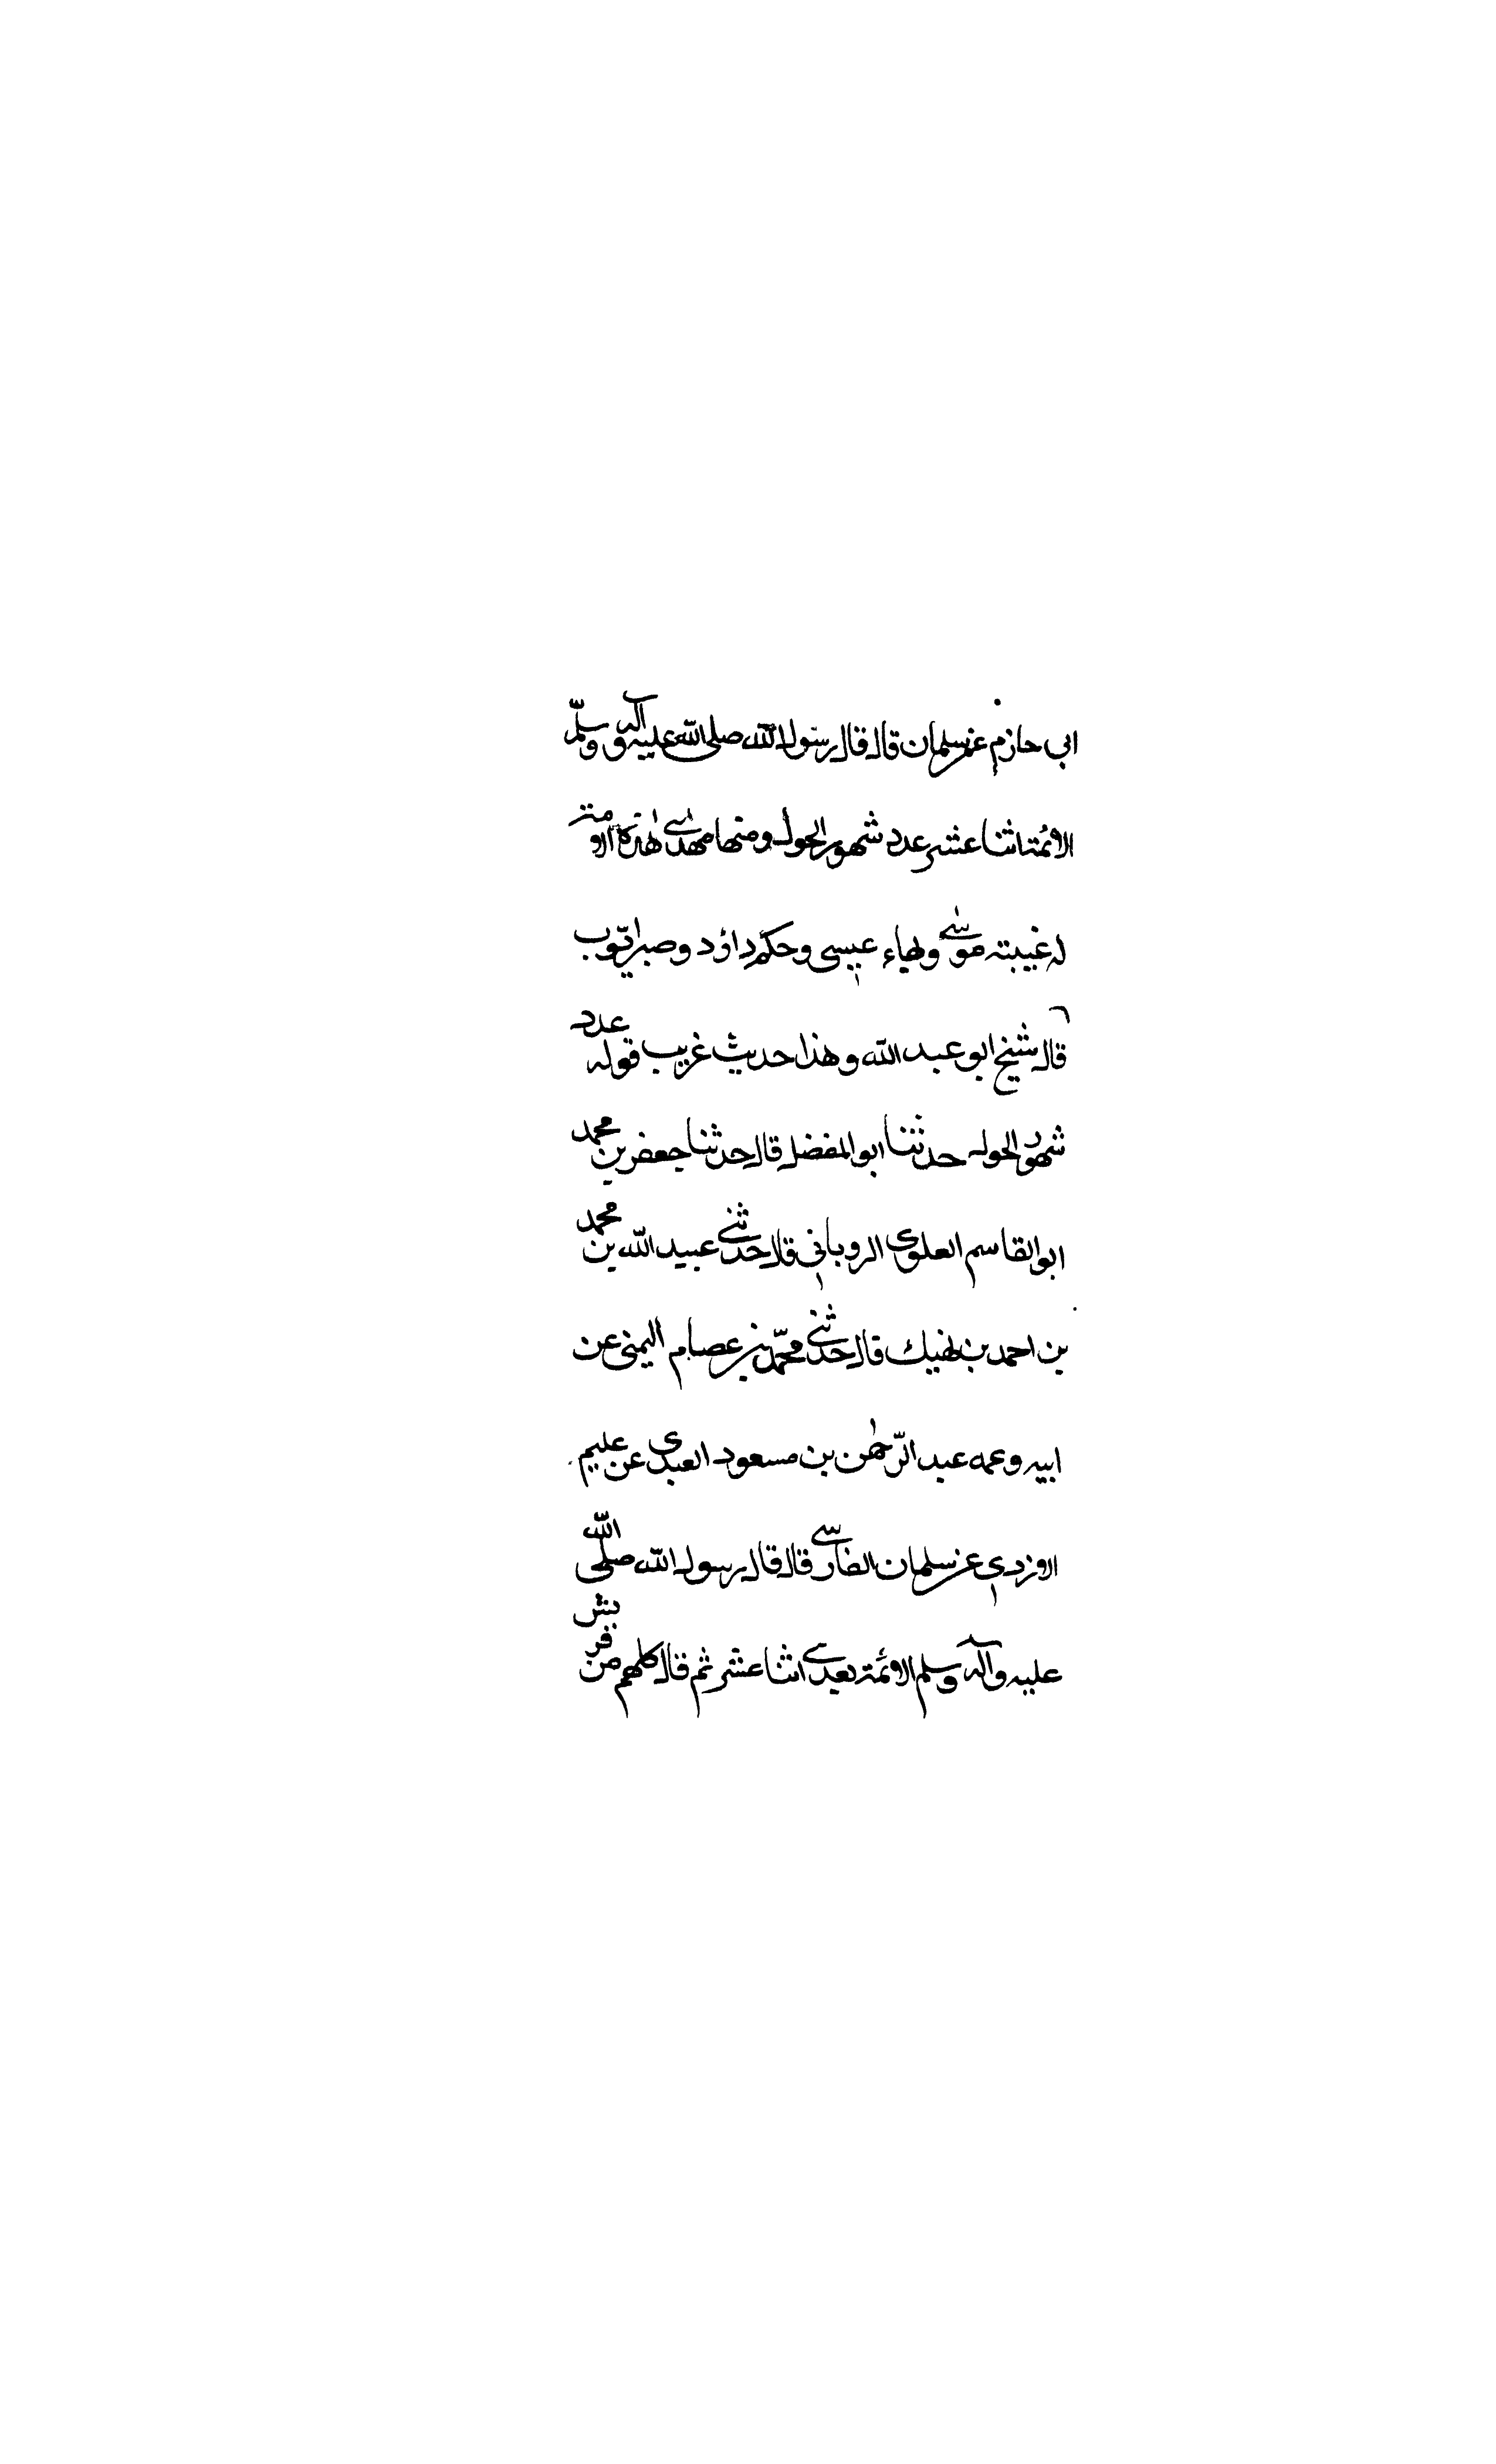 ابی حازم عن سلمان قال قال رسول الله صلی الله علیه وآله وسلم
الائمة اثنا عشر عدد شهور الحول ومنها مهدی هذه الامة
له غیبته موسی وبهاء عیسی وحکم داؤد وصبر ایوب
قال شیخ ابو عبد الله وهذا حدیث غریب قوله عدد
شهور الحول حدثنا ابو المفضل قال حدثنا جعفر بن محمد
ابو القاسم العلوی الروبانی قال حدثنی عبید الله بن محمد
بن احمد بن نهیك قال حدثنی محمد بن عصام الیمنی عن
ابیه وعمه عبد الرحمن بن مسعود العبدی عن علیم
الازدی عن سلمان الفارسی قال قال رسول الله صلی الله
علیه وآله وسلم الائمة بعدی اثنا عشر ثم قال کلهم من قریش